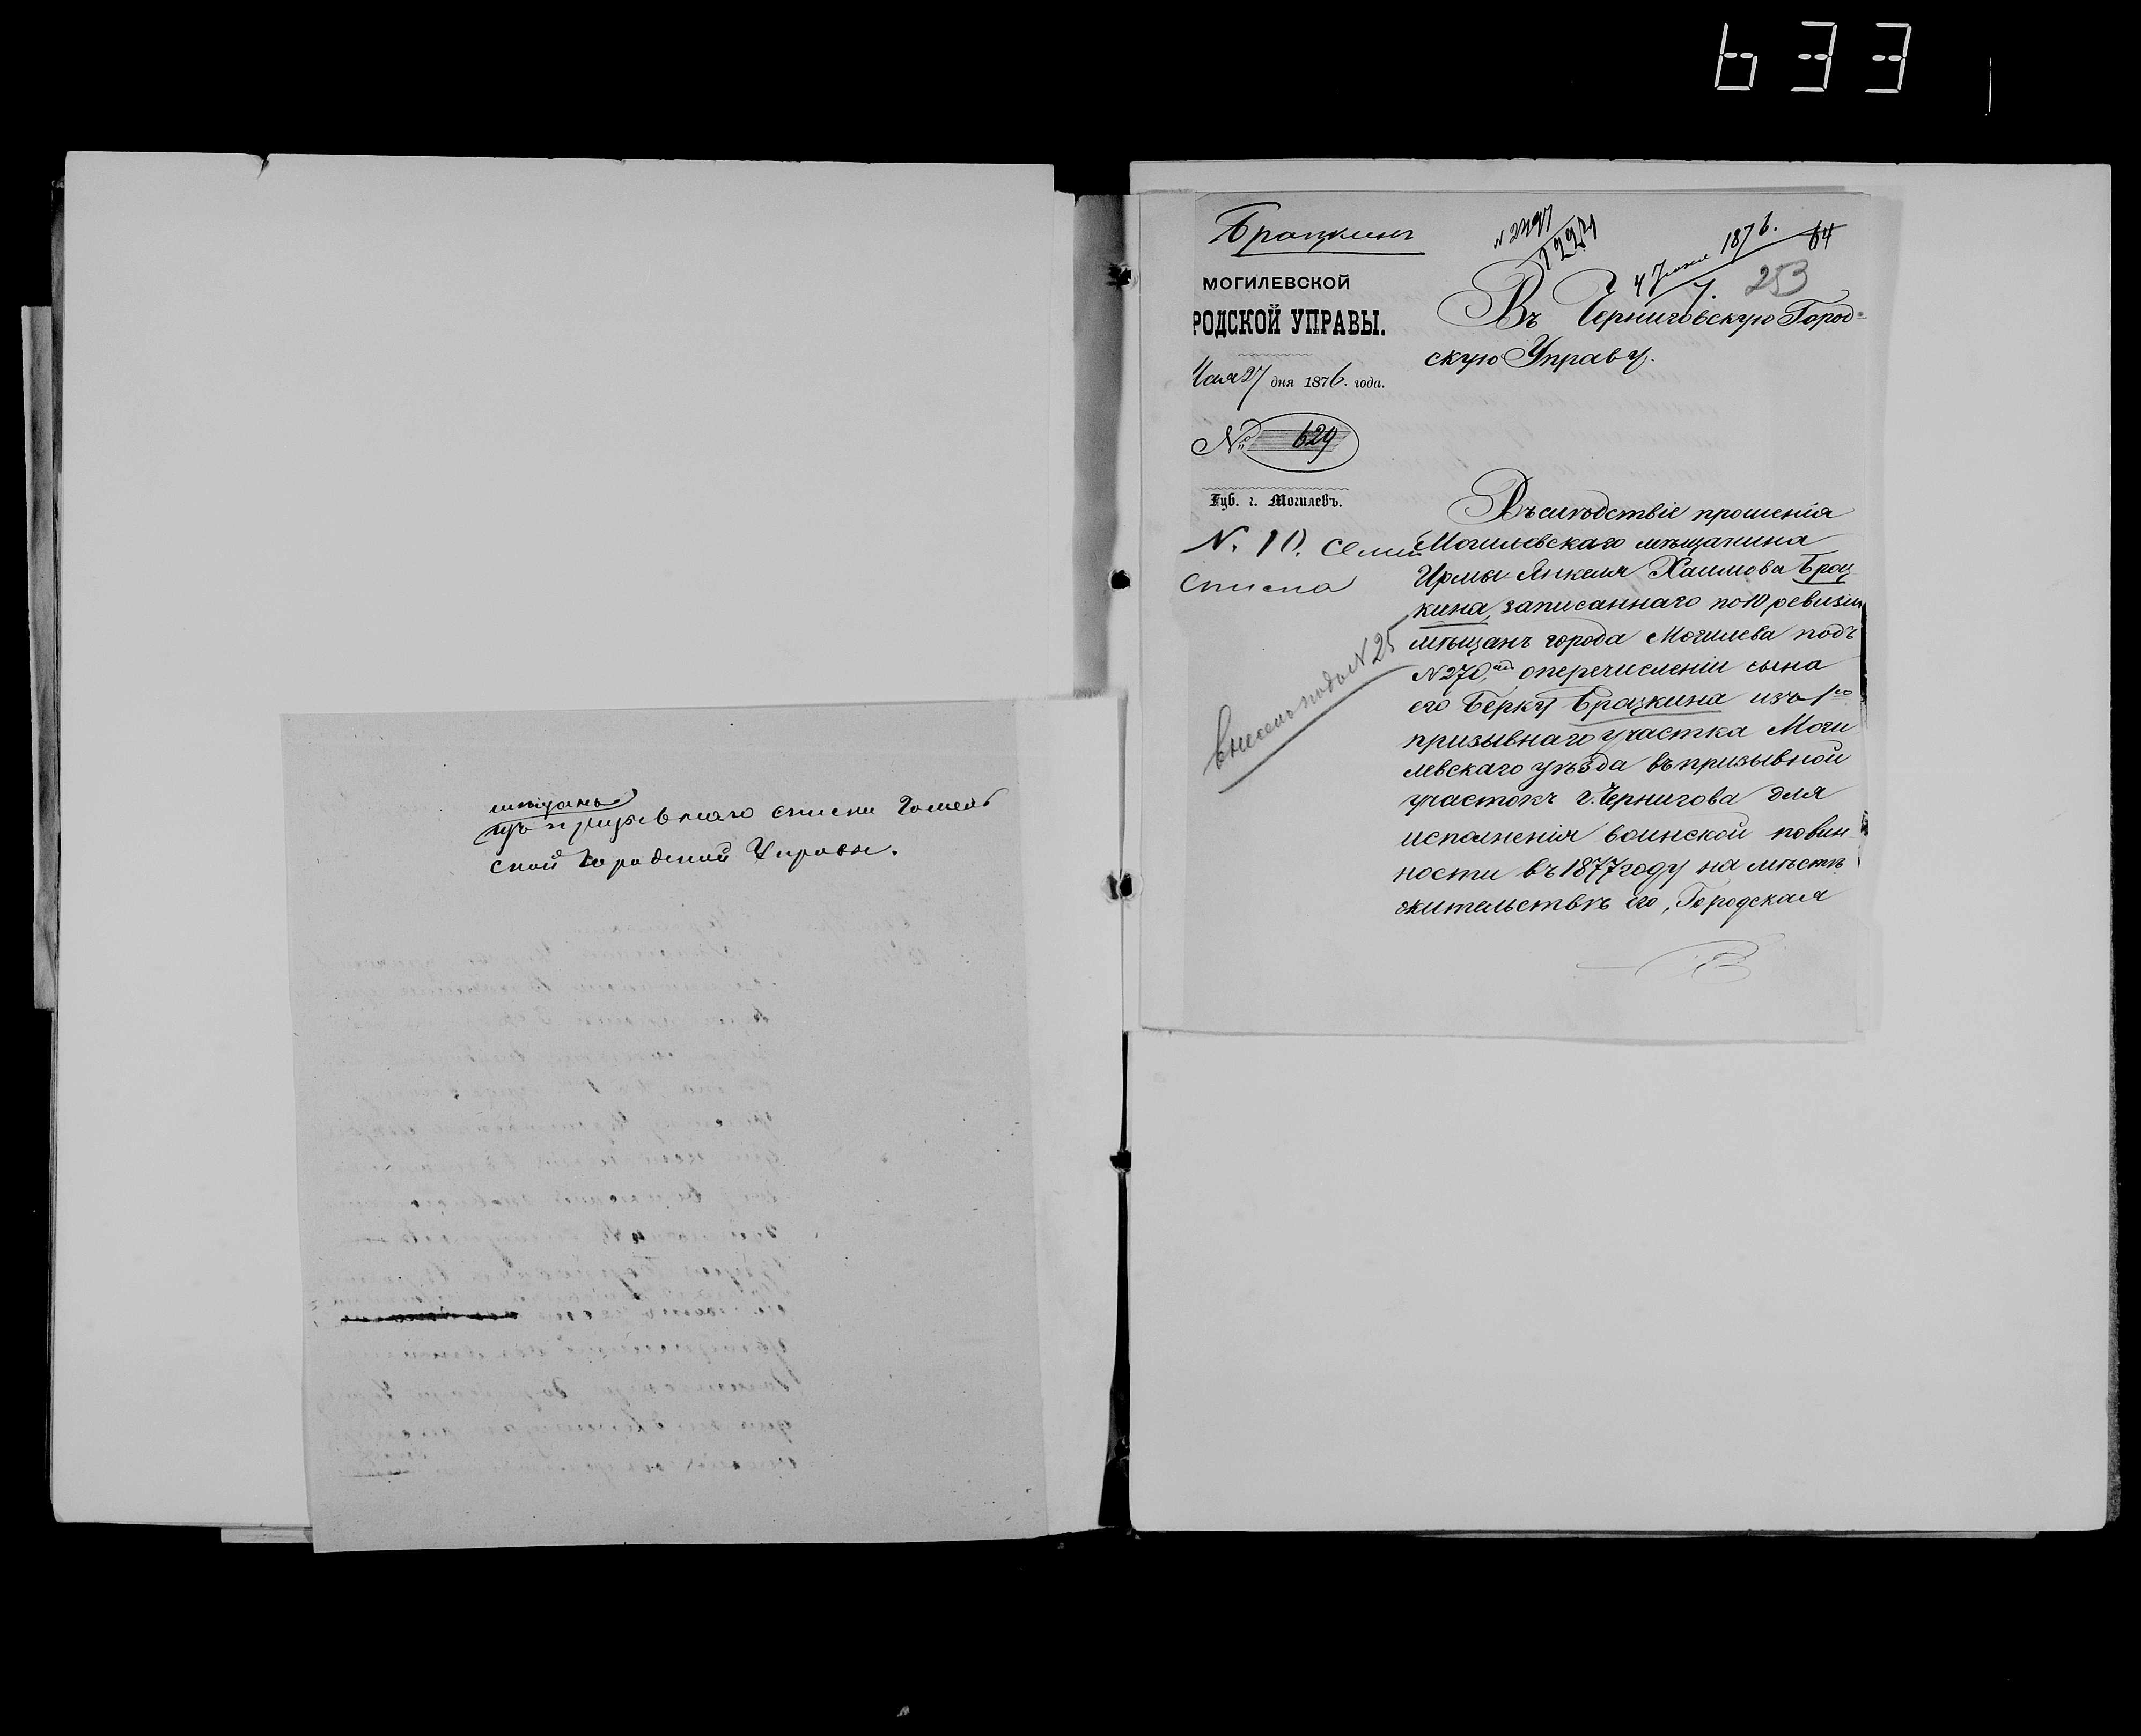 633
мѣщанъ
изъ призывнаго списка Гомель
ской Городской Управы.
Брацкинъ
N 2497
1876.
64
253
МОГИЛЕВСКОЙ
РОДСКОЙ УПРАВЫ.
Мая 27 дня 1876. года.
№ 629
Губ. г. Могилевъ.
N. 10. Семей
списка
внесенъ подъ N 25
Въ Черниговскую Город-
скую Управу.
Въслѣдствіе прошенія
Могилевскаго мѣщанина
Ирмы-Янкеля Хаимова Брац
кина, записаннаго по 10 ревизіи
мѣщанъ города Могилева подъ
N 270, о перечисленіи сына
его Берки Брацкина изъ 1го
призывнаго участка Моги
левскаго уѣзда въ призывной
участокъ г. Чернигова для
исполненія воинской повин-
ности въ 1877 году на мѣстѣ
жительствѣ его, Городская